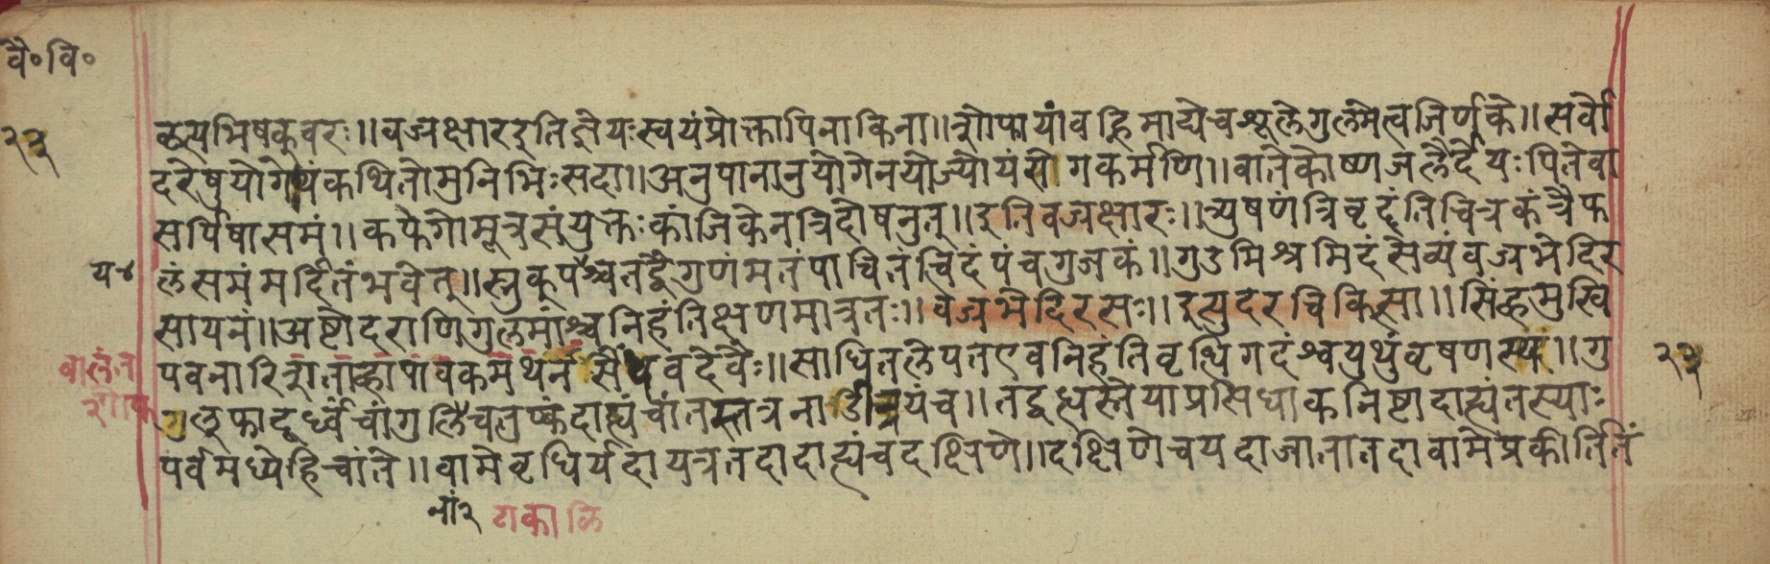 वै॰वि॰
२३
ळस्पभिषक्वरः॥वज्रक्षारइतिज्ञेयःस्वयंप्रोक्तापिनाकिना॥शोफायांवह्निमाद्येचश्शूलेगुल्मेत्वजिर्णके॥सर्वो
दरेषुयोगोयंकथितोमुनिभिःसदा॥अनुपानानुयोगेनयोज्योयंरोगकर्मणि॥वातेकोष्णजलैर्देयःपितेवा
सर्पिषासमं॥कफेगोमूत्रसंयुक्तःकांजिकेनत्रिदोषनुत्॥इतिवज्रक्षारः॥त्र्युषणंत्रिवृद्दंतिचित्रकंत्रैफ
लंसमंमर्दितंभवेत्॥स्नुक्पश्चतद्वैगुणंमतंपाचितंत्विदंपंचगुंजकं॥गुडमिश्रमिदंसेव्यंवज्रभेदिर
सायनं॥अष्टोदराणिगुल्मांश्चनिहंतिक्षणमात्रतः॥वज्रभेदिरसः॥इत्युदरचिकित्सा॥सिंहमुखि
पवनारिशताह्वापावकमथनसैंधवदेवैः॥साधिततलेपतएवनिहंतिवृध्धिगदंश्वयुथुंवृषणस्य॥गु
गुल्फादूर्ध्वंचांगुलिचतुष्कंदाह्यंचांतस्तत्रनाडीद्वयंच॥तद्वध्यस्नेयाप्रसिधाकनिष्टादाह्यंतस्याः
पर्वमध्येहिचांते॥वामेवृधिर्यदायत्रतदादाह्यंचदक्षिणे॥दक्षिणेचयदाजातातदावामेप्रकीर्तितं
य४
२३
नां२ टाकाळि